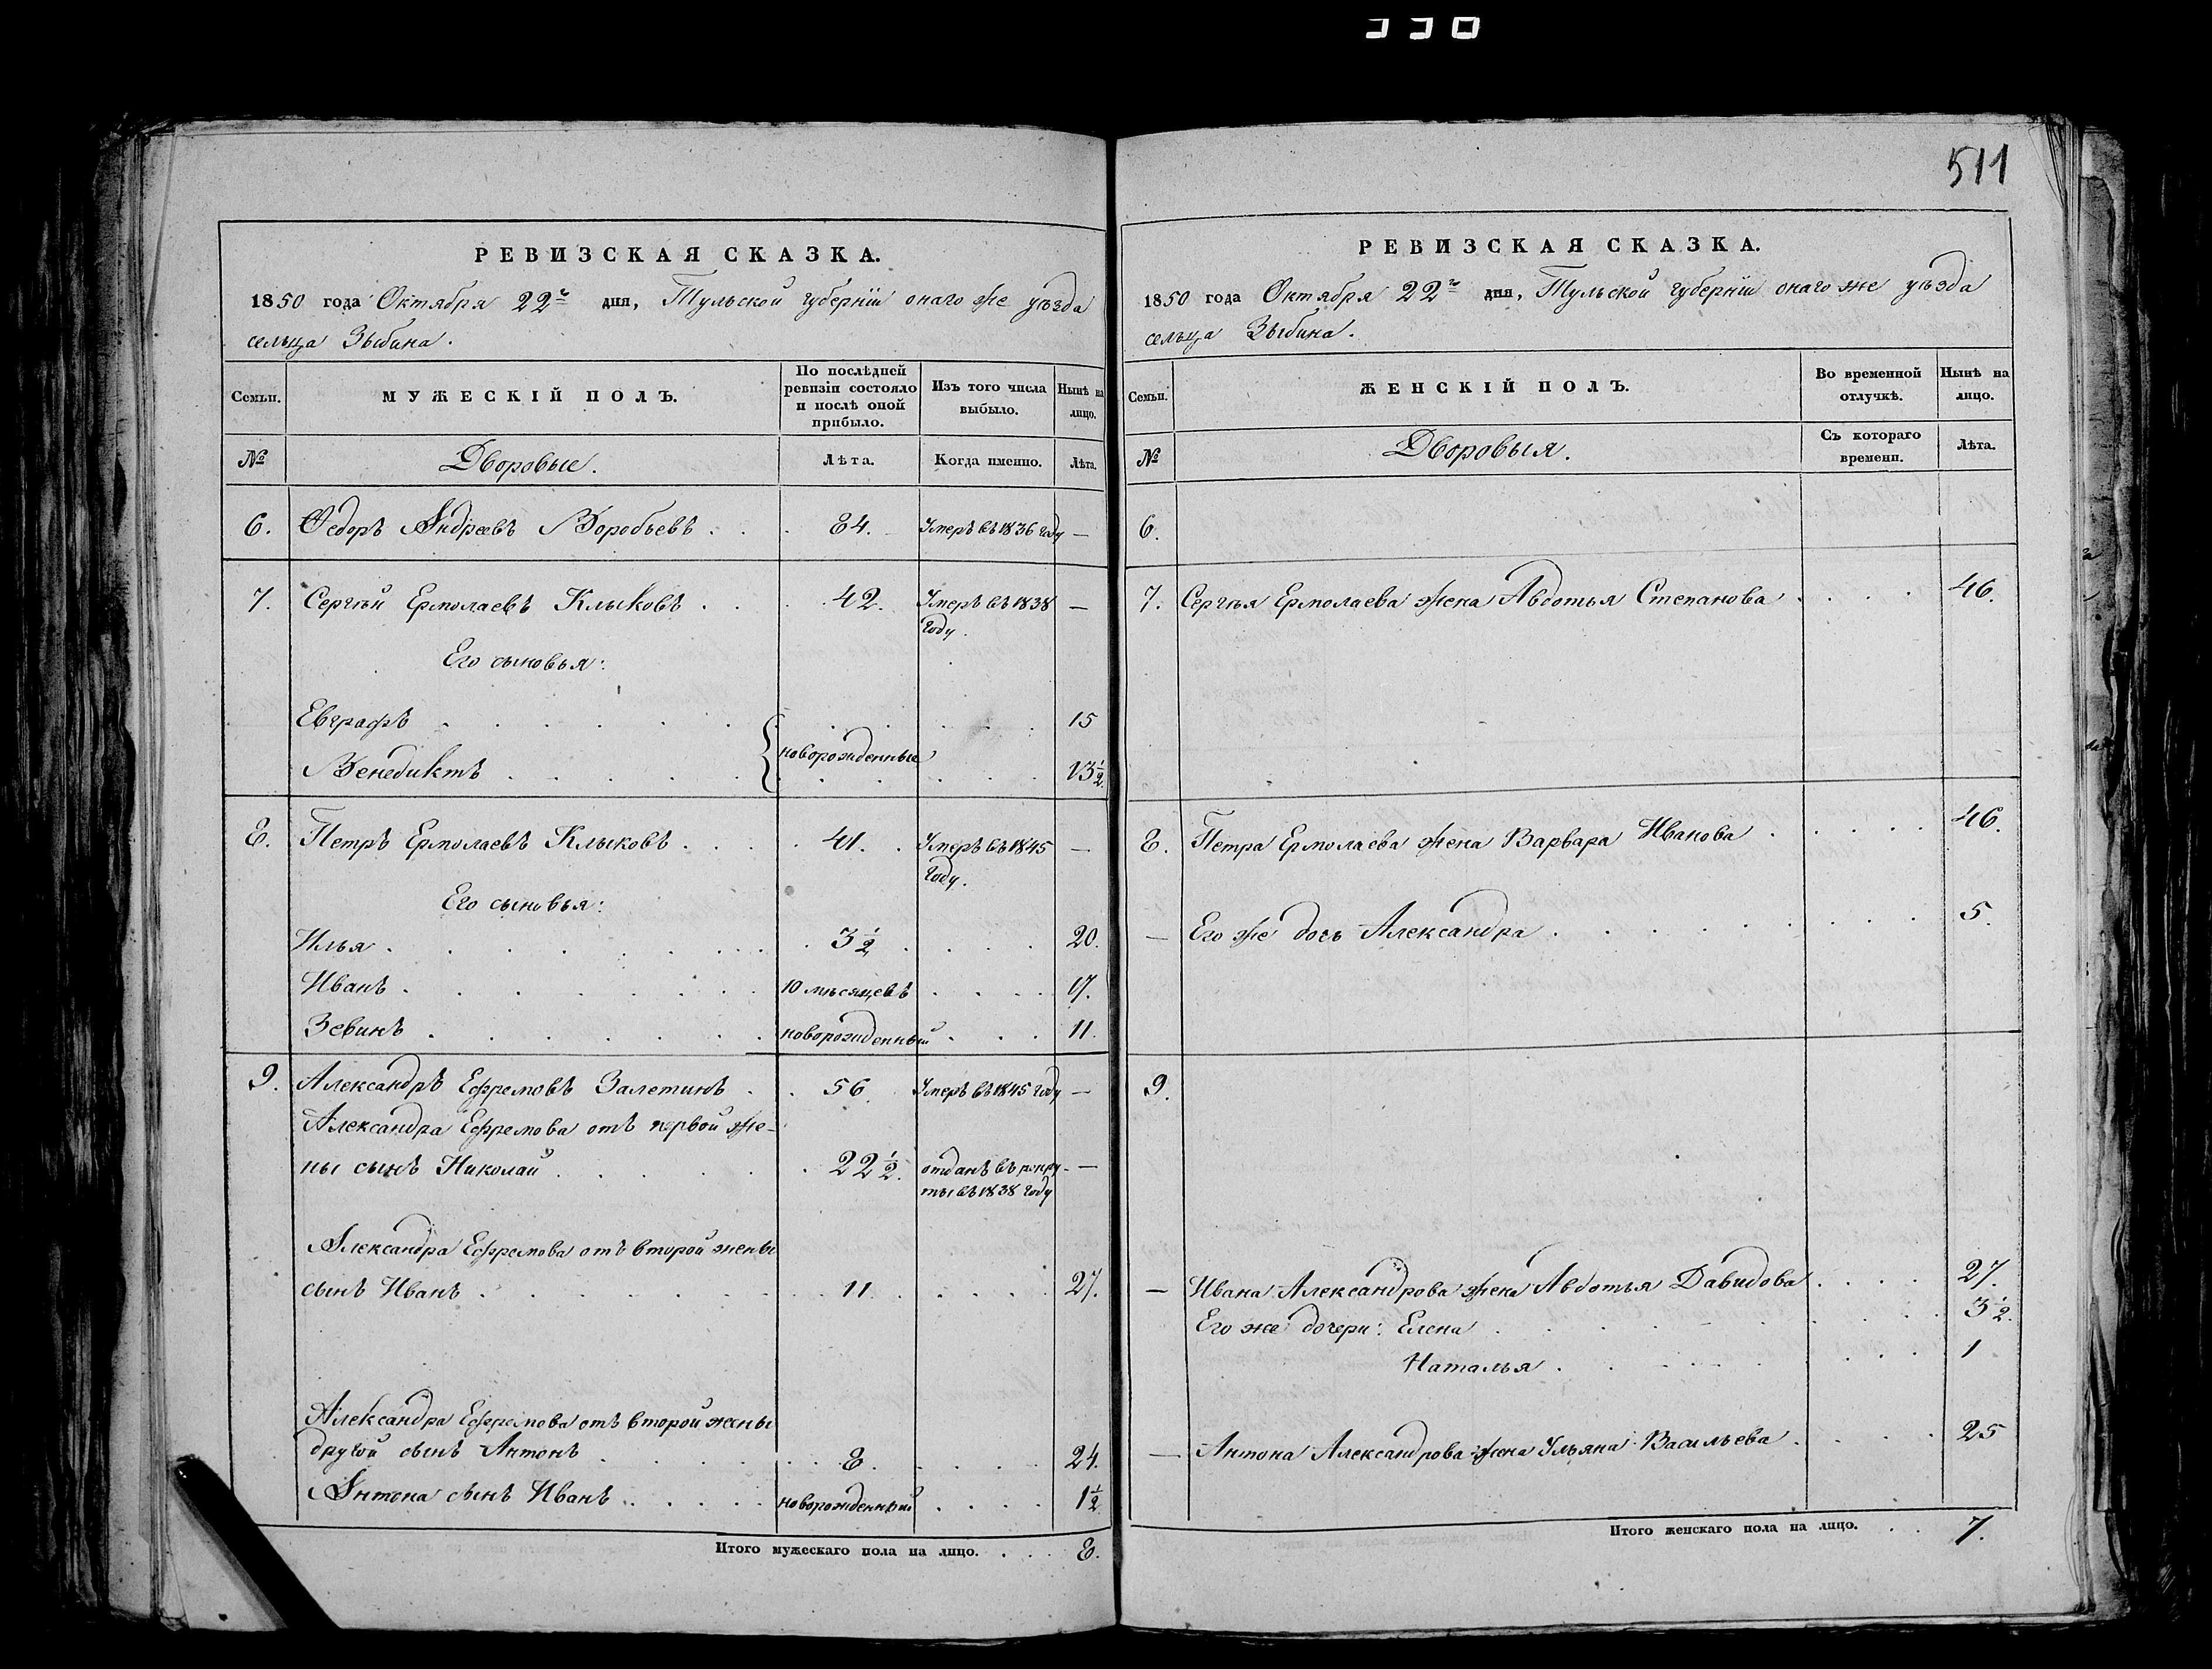 330
511
РЕВИЗСКАЯ СКАЗКА.
1850 года Октября 22го дня, Тульской губерніи онаго же уѣзда
сельца Зыбина.
Семьи. МУЖЕСКІЙ ПОЛЪ. По послѣдней ревизіи состояло и послѣ оной прибыло. Изъ того числа выбыло. Нынѣ на лицо.
№ Дворовые. Лѣта. Когда именно. Лѣта.
6. Ѳедоръ Андреевъ Воробьевъ . . . 84. Умеръ въ 1836 году —
7. Сергѣй Ермолаевъ Клыковъ . . . 42. Умеръ въ 1838 —
году.
Его сыновья:
Евграфъ . . . . . . 15
новорожденные
Венедиктъ . . . . . 13½.
8. Петръ Ермолаевъ Клыковъ . . . 41. Умеръ въ 1845 —
году.
Его сыновья:
Илья . . . . . . 3½ . . . 20.
Иванъ . . . . . . 10 мѣсяцевъ . . . 17.
Зевинъ . . . . . . новорожденный . . . 11.
9. Александръ Ефремовъ Залетинъ . . 56. Умеръ въ 1845 году —
Александра Ефремова отъ первой же-
ны сынъ Николай . . . . . 22½. отданъ въ рекру- —
ты въ 1838 году
Александра Ефремова отъ второй жены
сынъ Иванъ . . . . . . 11 . . . . 27.
Александра Ефремова отъ второй жены
другой сынъ Антонъ . . . . 8. . . . . 24.
Антона сынъ Иванъ . . . . . новорожденный . . . 1½
Итого мужескаго пола на лицо. . . . 8.
РЕВИЗСКАЯ СКАЗКА.
1850 года Октября 22го дня, Тульской губерніи онаго же уѣзда
сельца Зыбина.
Семьи. ЖЕНСКІЙ ПОЛЪ. Во временной отлучкѣ. Нынѣ на лицо.
№ Дворовыя. Съ котораго времени. Лѣта.
6.
7. Сергѣя Ермолаева жена Авдотья Степанова . . . . 46.
8. Петра Ермолаева жена Варвара Иванова . . . . 46.
— Его же дочь Александра . . . . . . 5.
9.
— Ивана Александрова жена Авдотья Давидова . . . . 27.
Его же дочери: Елена . . . . . . 3½.
Наталья . . . . . . 1
— Антона Александрова жена Ульяна Васильева . . . . 25
Итого женскаго пола на лицо. . . 7.